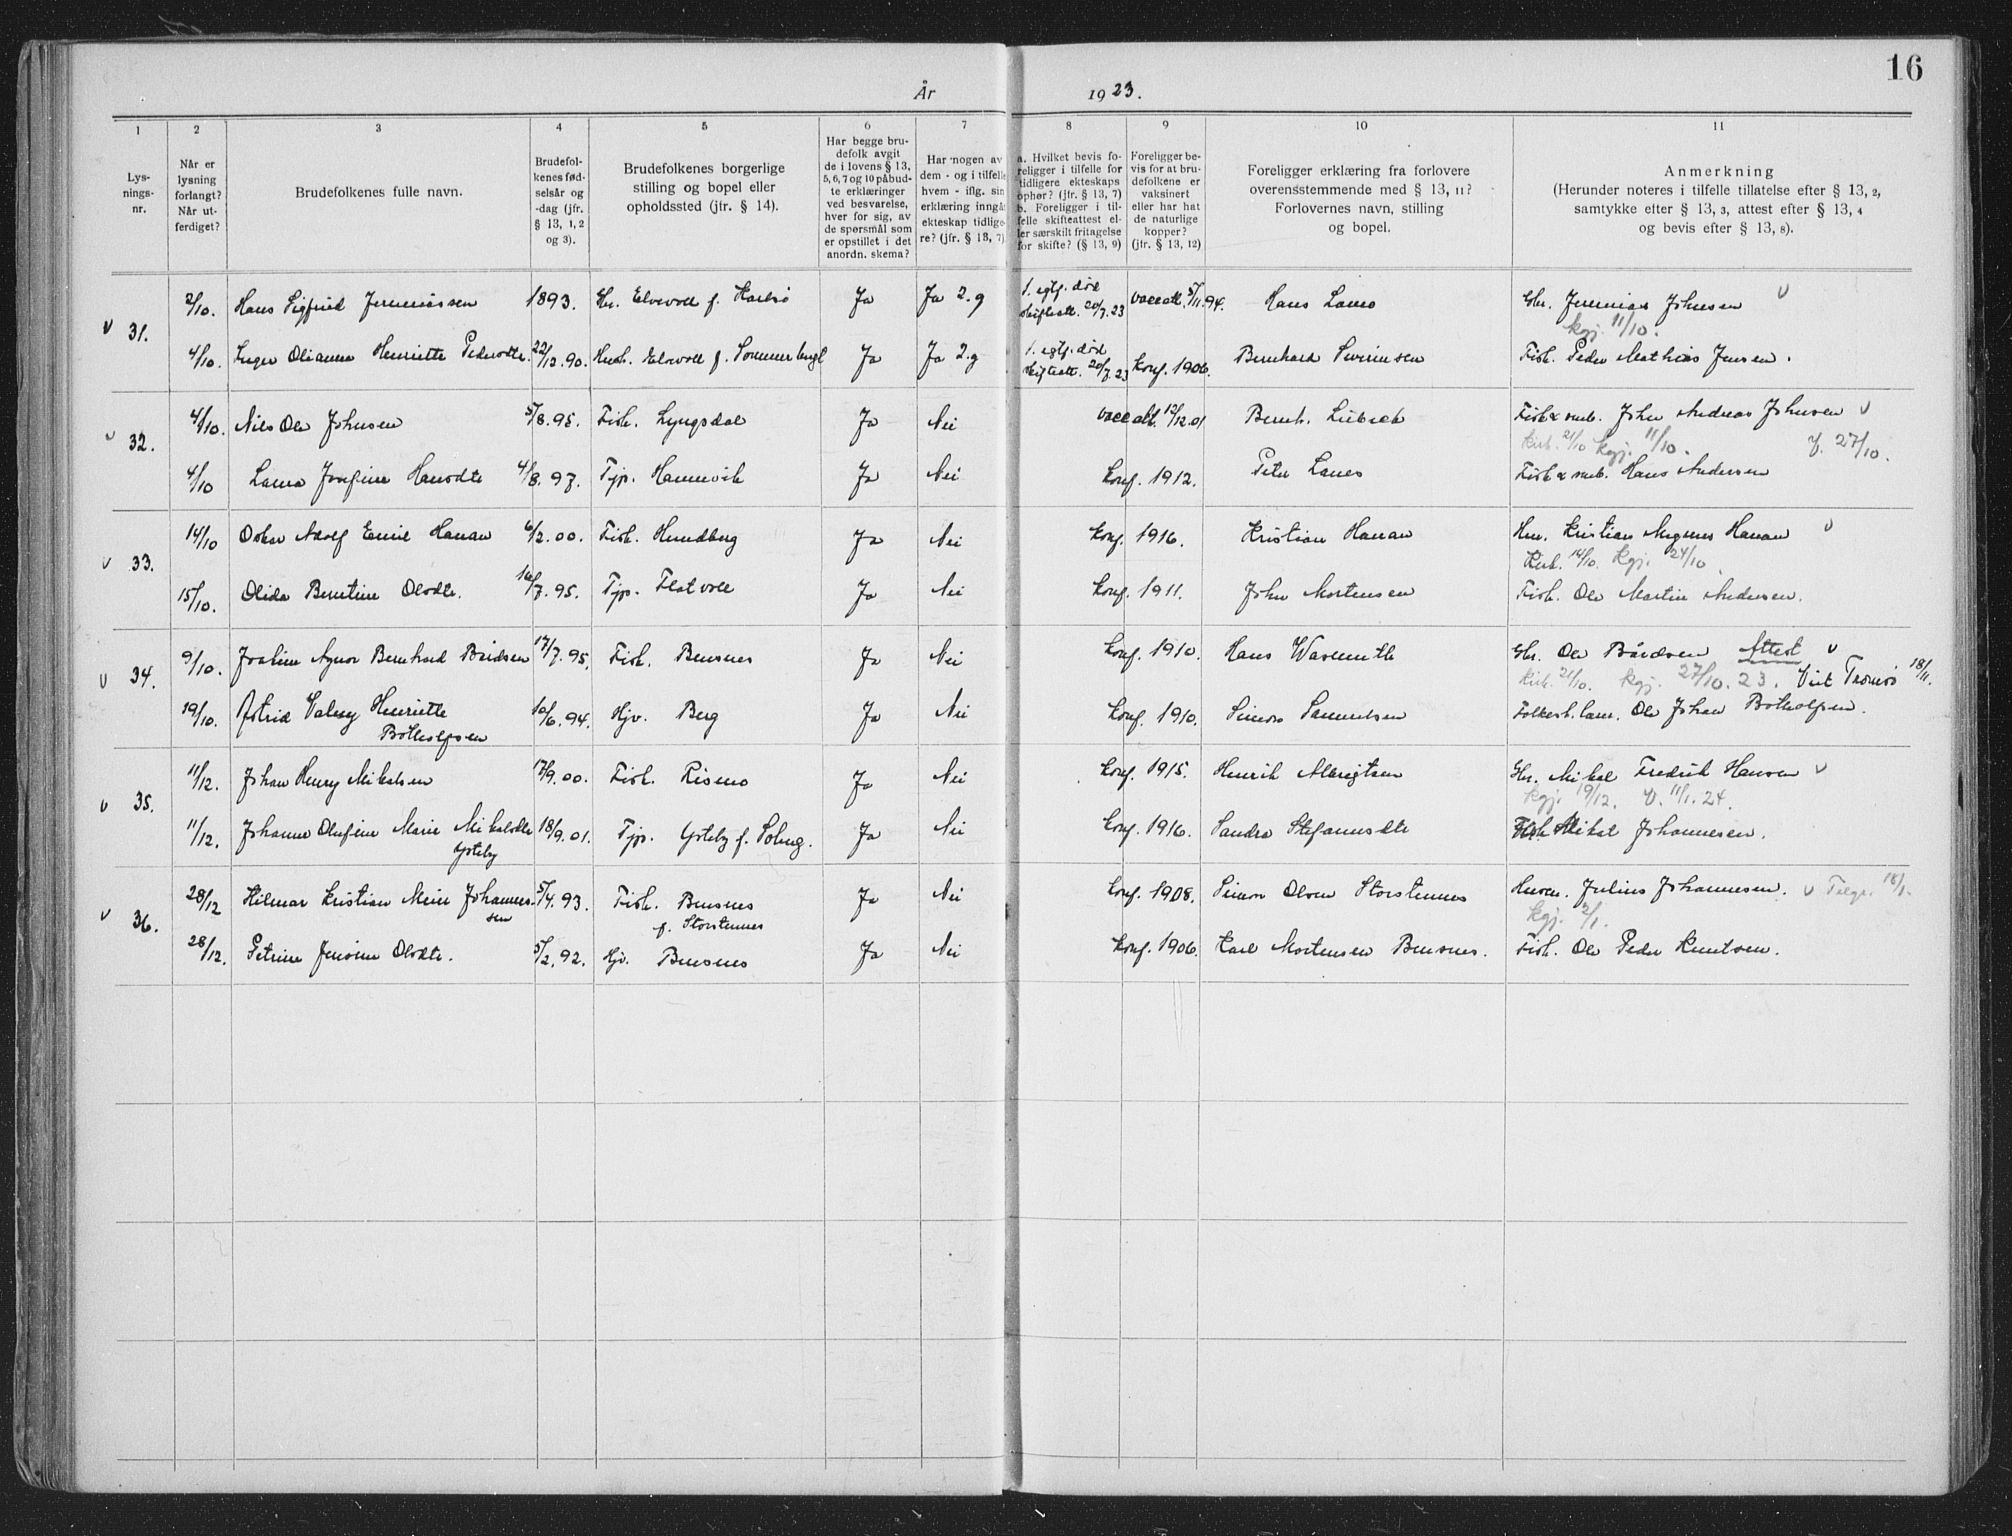 16
År 1923.
1 2 3 4 5 6 7 8 9 10 11
Lys-
nings-
nr.
Når er
lysning
forlangt?
Når ut-
ferdiget?
Brudefolkenes fulle navn.
Brudefol-
kenes fød-
selsår og
-dag (jfr.
§ 13, 1, 2
og 3).
Brudefolkenes borgerlige
stilling og bopel eller
opholdssted (jfr. § 14).
Har begge bru-
defolk avgit
de i lovens § 13,
5, 6, 7 og 10 påbud-
te erklæringer
ved besvarelse,
hver for sig, av
de spørsmål som
er opstillet i det
anordn. skema?
Har nogen av
dem - og i tilfelle
hvem - iflg. sin
erklæring inngått
ekteskap tidlige-
re? (jfr. § 13, 7)
a. Hvilket bevis fo-
religger i tilfelle for
tidligere ekteskaps
ophør? (jfr. § 13, 7)
b. Foreligger i til-
felle skifteattest el-
ler særskilt fritagelse
for skifte? (§ 13, 9)
Foreligger be-
vis for at bru-
defolkene er
vaksinert
eller har hat
de naturlige
kopper?
(jfr. § 13, 12)
Foreligger erklæring fra forlovere
overensstemmende med § 13, 11?
Forlovernes navn, stilling
og bopel.
Anmerkning
(Herunder noteres i tilfelle tillatelse efter § 13, 2,
samtykke efter § 13, 3, attest efter § 13, 4
og bevis efter § 13, 8).
v 31.
2/10. Hans Sigfred Jeremiassen 1893. Elvevoll f. Karlsø Ja Ja 2. g 1. egtf. død skifteatt. 20/7.23 vacc att. 5/11.94. Hans Lanes Jeremias Johnsen v
kgj. 11/10.
4/10. Inger Olianna Henriette Pedersdtr. 22/12.90. Elvevoll f. Ja Ja 2. g 1. egtf. død skifteatt. 20/7.23 konf. 1906. Bernhard Severinsen Fisk. Peder Mathias Jensen.
v 32.
4/10. Nils Ole Johnsen 5/8.95. Fisk. Lyngsdal Ja Nei vacc att. 12/12.01 Bernh. Lübeck Fisk & smb. John Andreas Johnsen v
21/10 kgj. 11/10. 27/10.
4/10 Laura Josefine Hansdtr 4/8.97. Tjp. Hamnvik Ja Nei konf. 1912. Peter Lanes Fisk & smb. Hans Andersen
v 33.
14/10 Oskar Adolf Emil Hansen 6/2.00. Fisk. Hundberg Ja Nei konf. 1916. Kristian Hansen Kristian Magnus Hansen v
14/10. kgj. 24/10.
15/10. Olida Berntine Olsdtr. 16/7.95. Tjp. Flatvoll Ja Nei konf. 1911. John Mortensen Fisk. Ole Martin Andersen.
v 34.
9/10. Joakim Agnor Bernhard Bårdsen 17/7.95. Fisk. Bensnes Ja Nei konf. 1910. Hans Wasmuth Ole Bårdsen Attest v
21/10. kgj. 27/10.23. Viet Tromsø 18/11.
19/10. Astrid Valney Henriette 10/6.94. Hjv. Berg Ja Nei konf. 1910. Simon Samuelsen Ole Johan Botholfsen.
Botholfsen
v 35.
11/12. Johan Henry Mikalsen 17/9.00. Fisk. Risnes Ja Nei konf. 1915. Henrik Albrigtsen Mikal Fredrik Hansen v
kgj. 19/12. V. 11/1.24.
11/12. Johanne Olufine Marie Mikalsdtr 18/9.01. Tjp. Ysteby f. Ja Nei konf. 1916. Sandra Stefannsdtr Mikal Johannesen.
Ysteby
v 36.
28/12 Hilmar Kristian Meier Johannes- 5/4.93. Fisk. Bensnes Ja Nei konf. 1908. Simon Olsen Storstennes Julius Johannesen. v Telgr. 18/1.
sen f. Storstennes kgj. 2/1.
28/12. Petrine Jensine Olsdtr. 5/2.92. Hjv. Bensnes Ja Nei konf. 1906. Karl Mortensen Bensnes. Fisk. Ole Peder Knutsen.